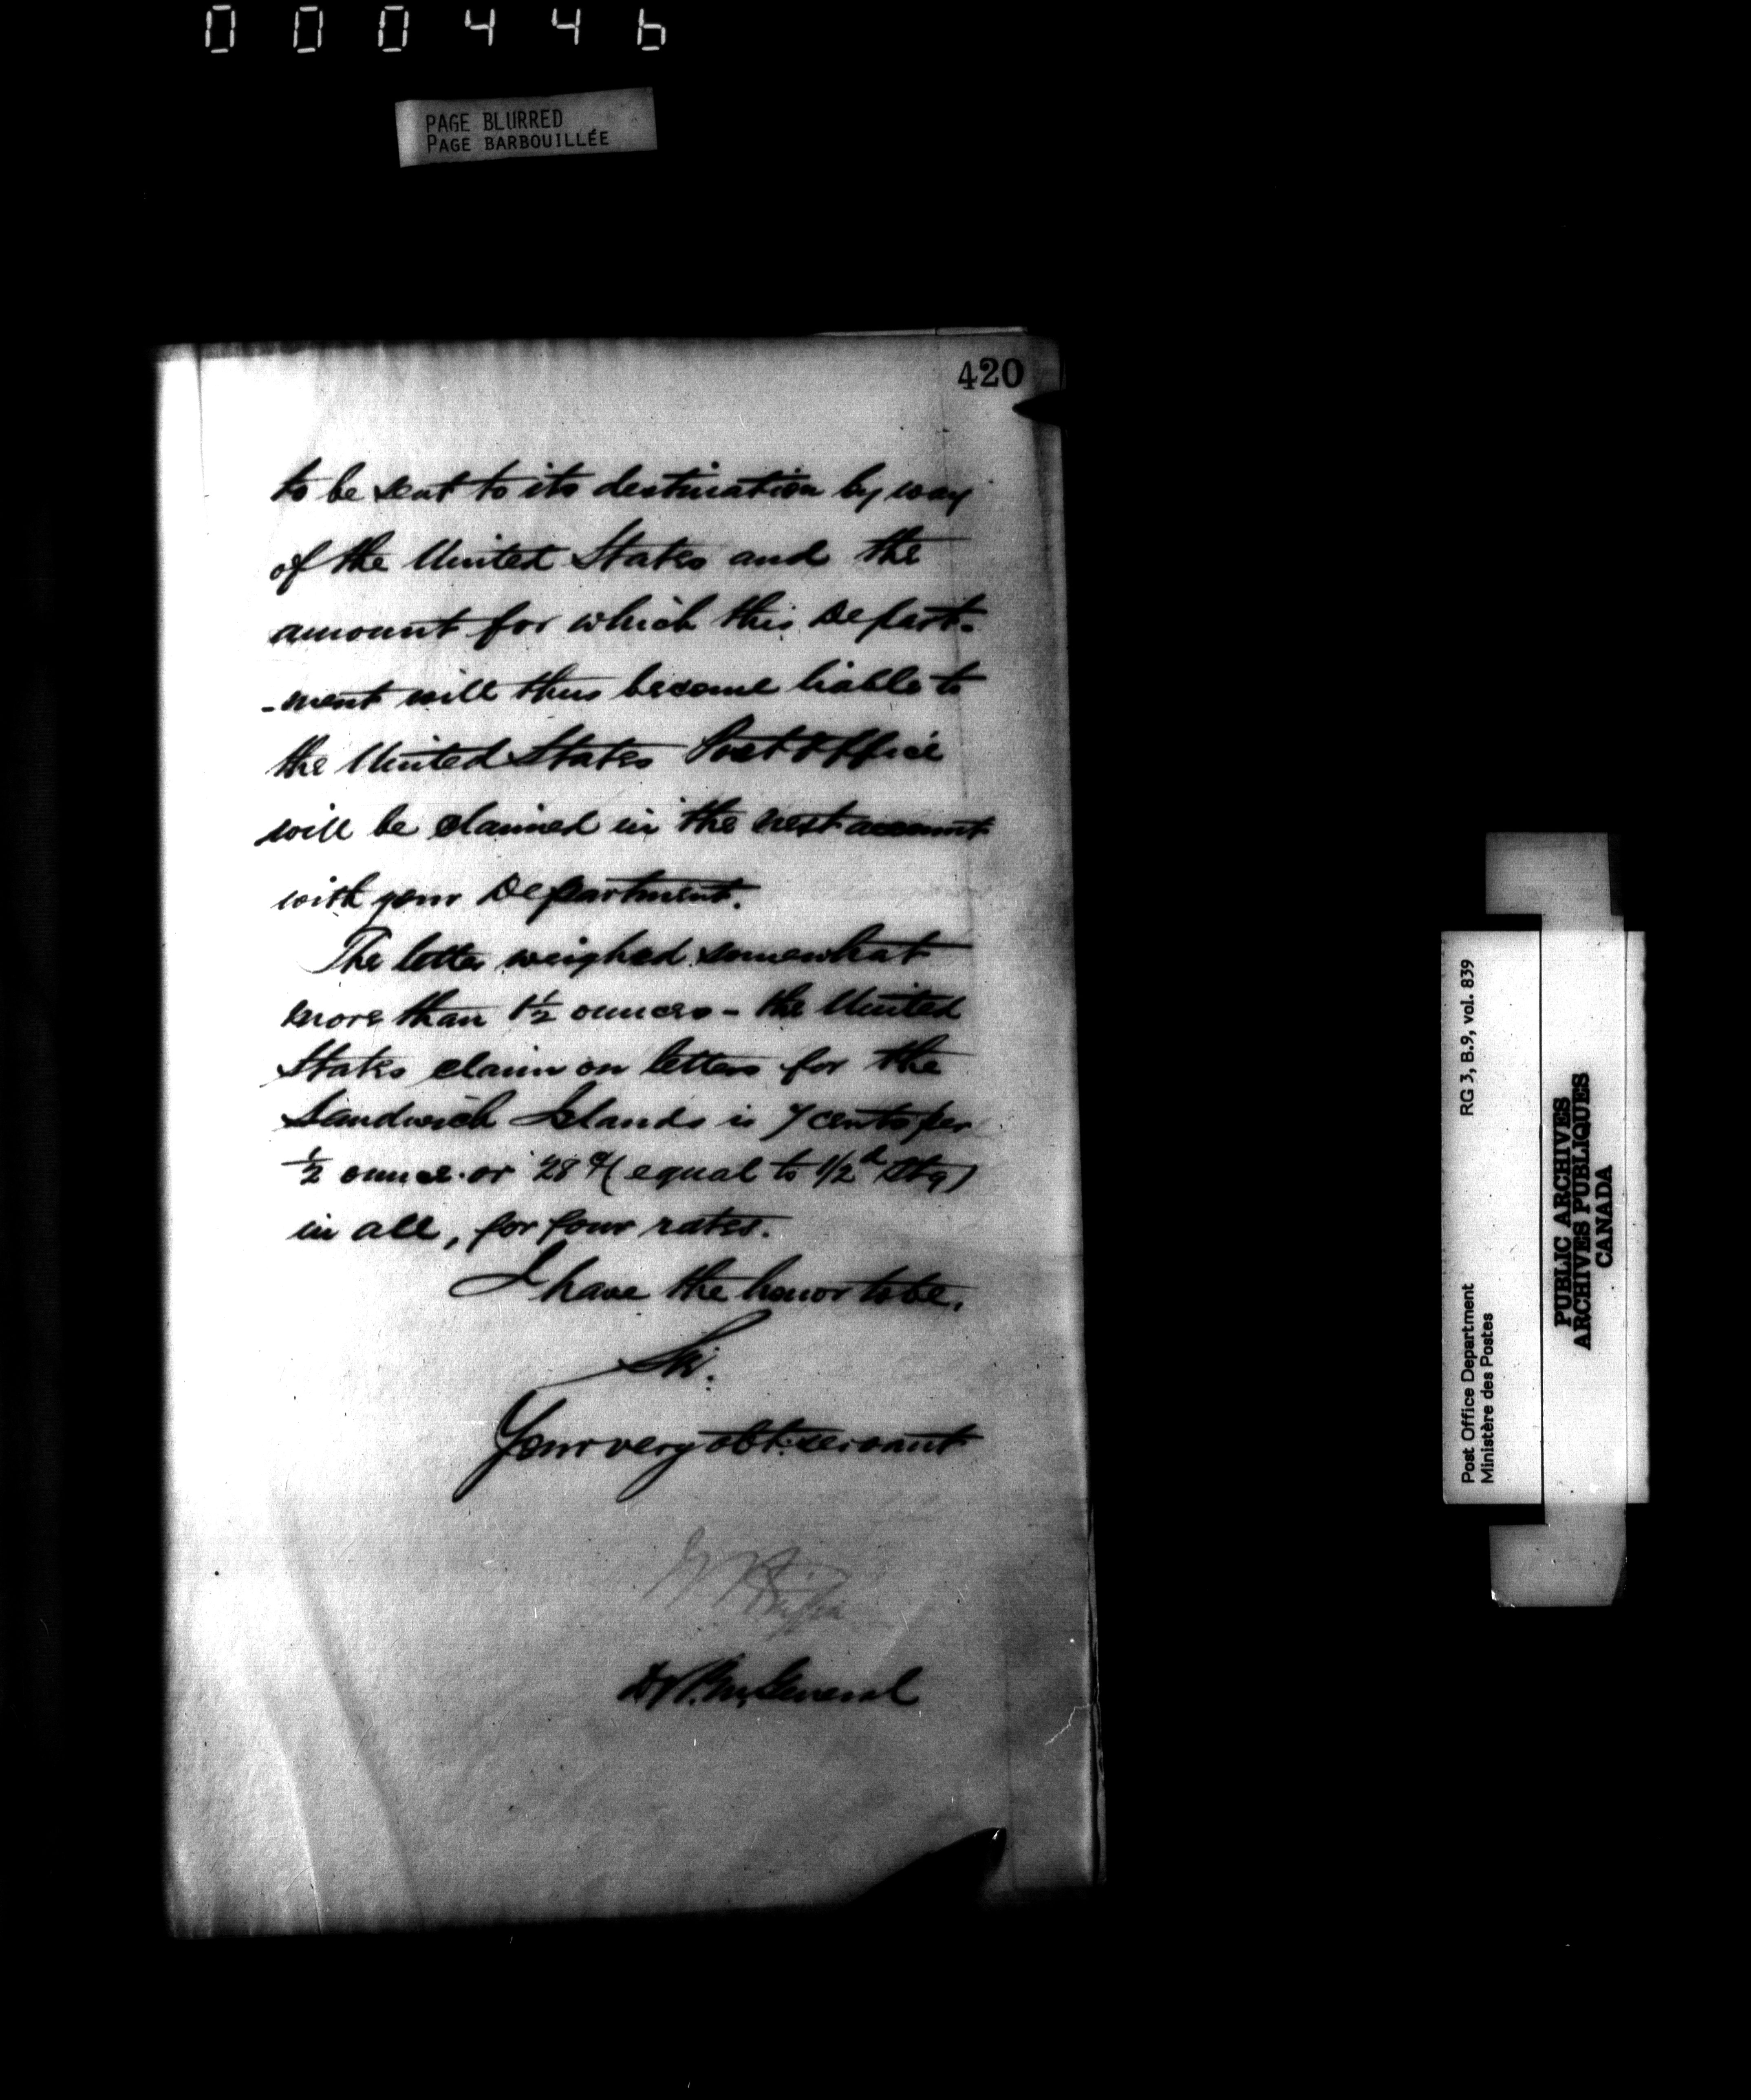 000446
PAGE BLURRED
PAGE BARBOUILLÉE
420
to be sent to its destination by way
of the United States and the
amount for which this Depart-
-ment will thus become liable to
the United States Post Office
will be claimed in the next account
with your Department.
The letter weighed somewhat
more than 1½ ounces - the United
States claim on letters for the
Sandwich Islands is 7 cents per
½ ounce or 28 c/ (equal to 1/2d Stg)
in all, for four rates.
I have the honor to be,
Sir.
Your very obt. servant
D. P. M. General
RG 3, B.9, vol. 839
Post Office Department
Ministère des Postes
PUBLIC ARCHIVES
ARCHIVES PUBLIQUES
CANADA